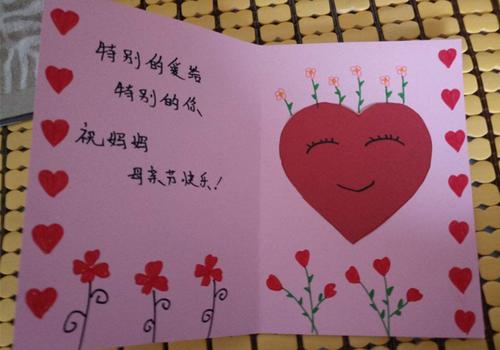 特别的爱给
特别的你
祝妈妈
母亲节快乐!